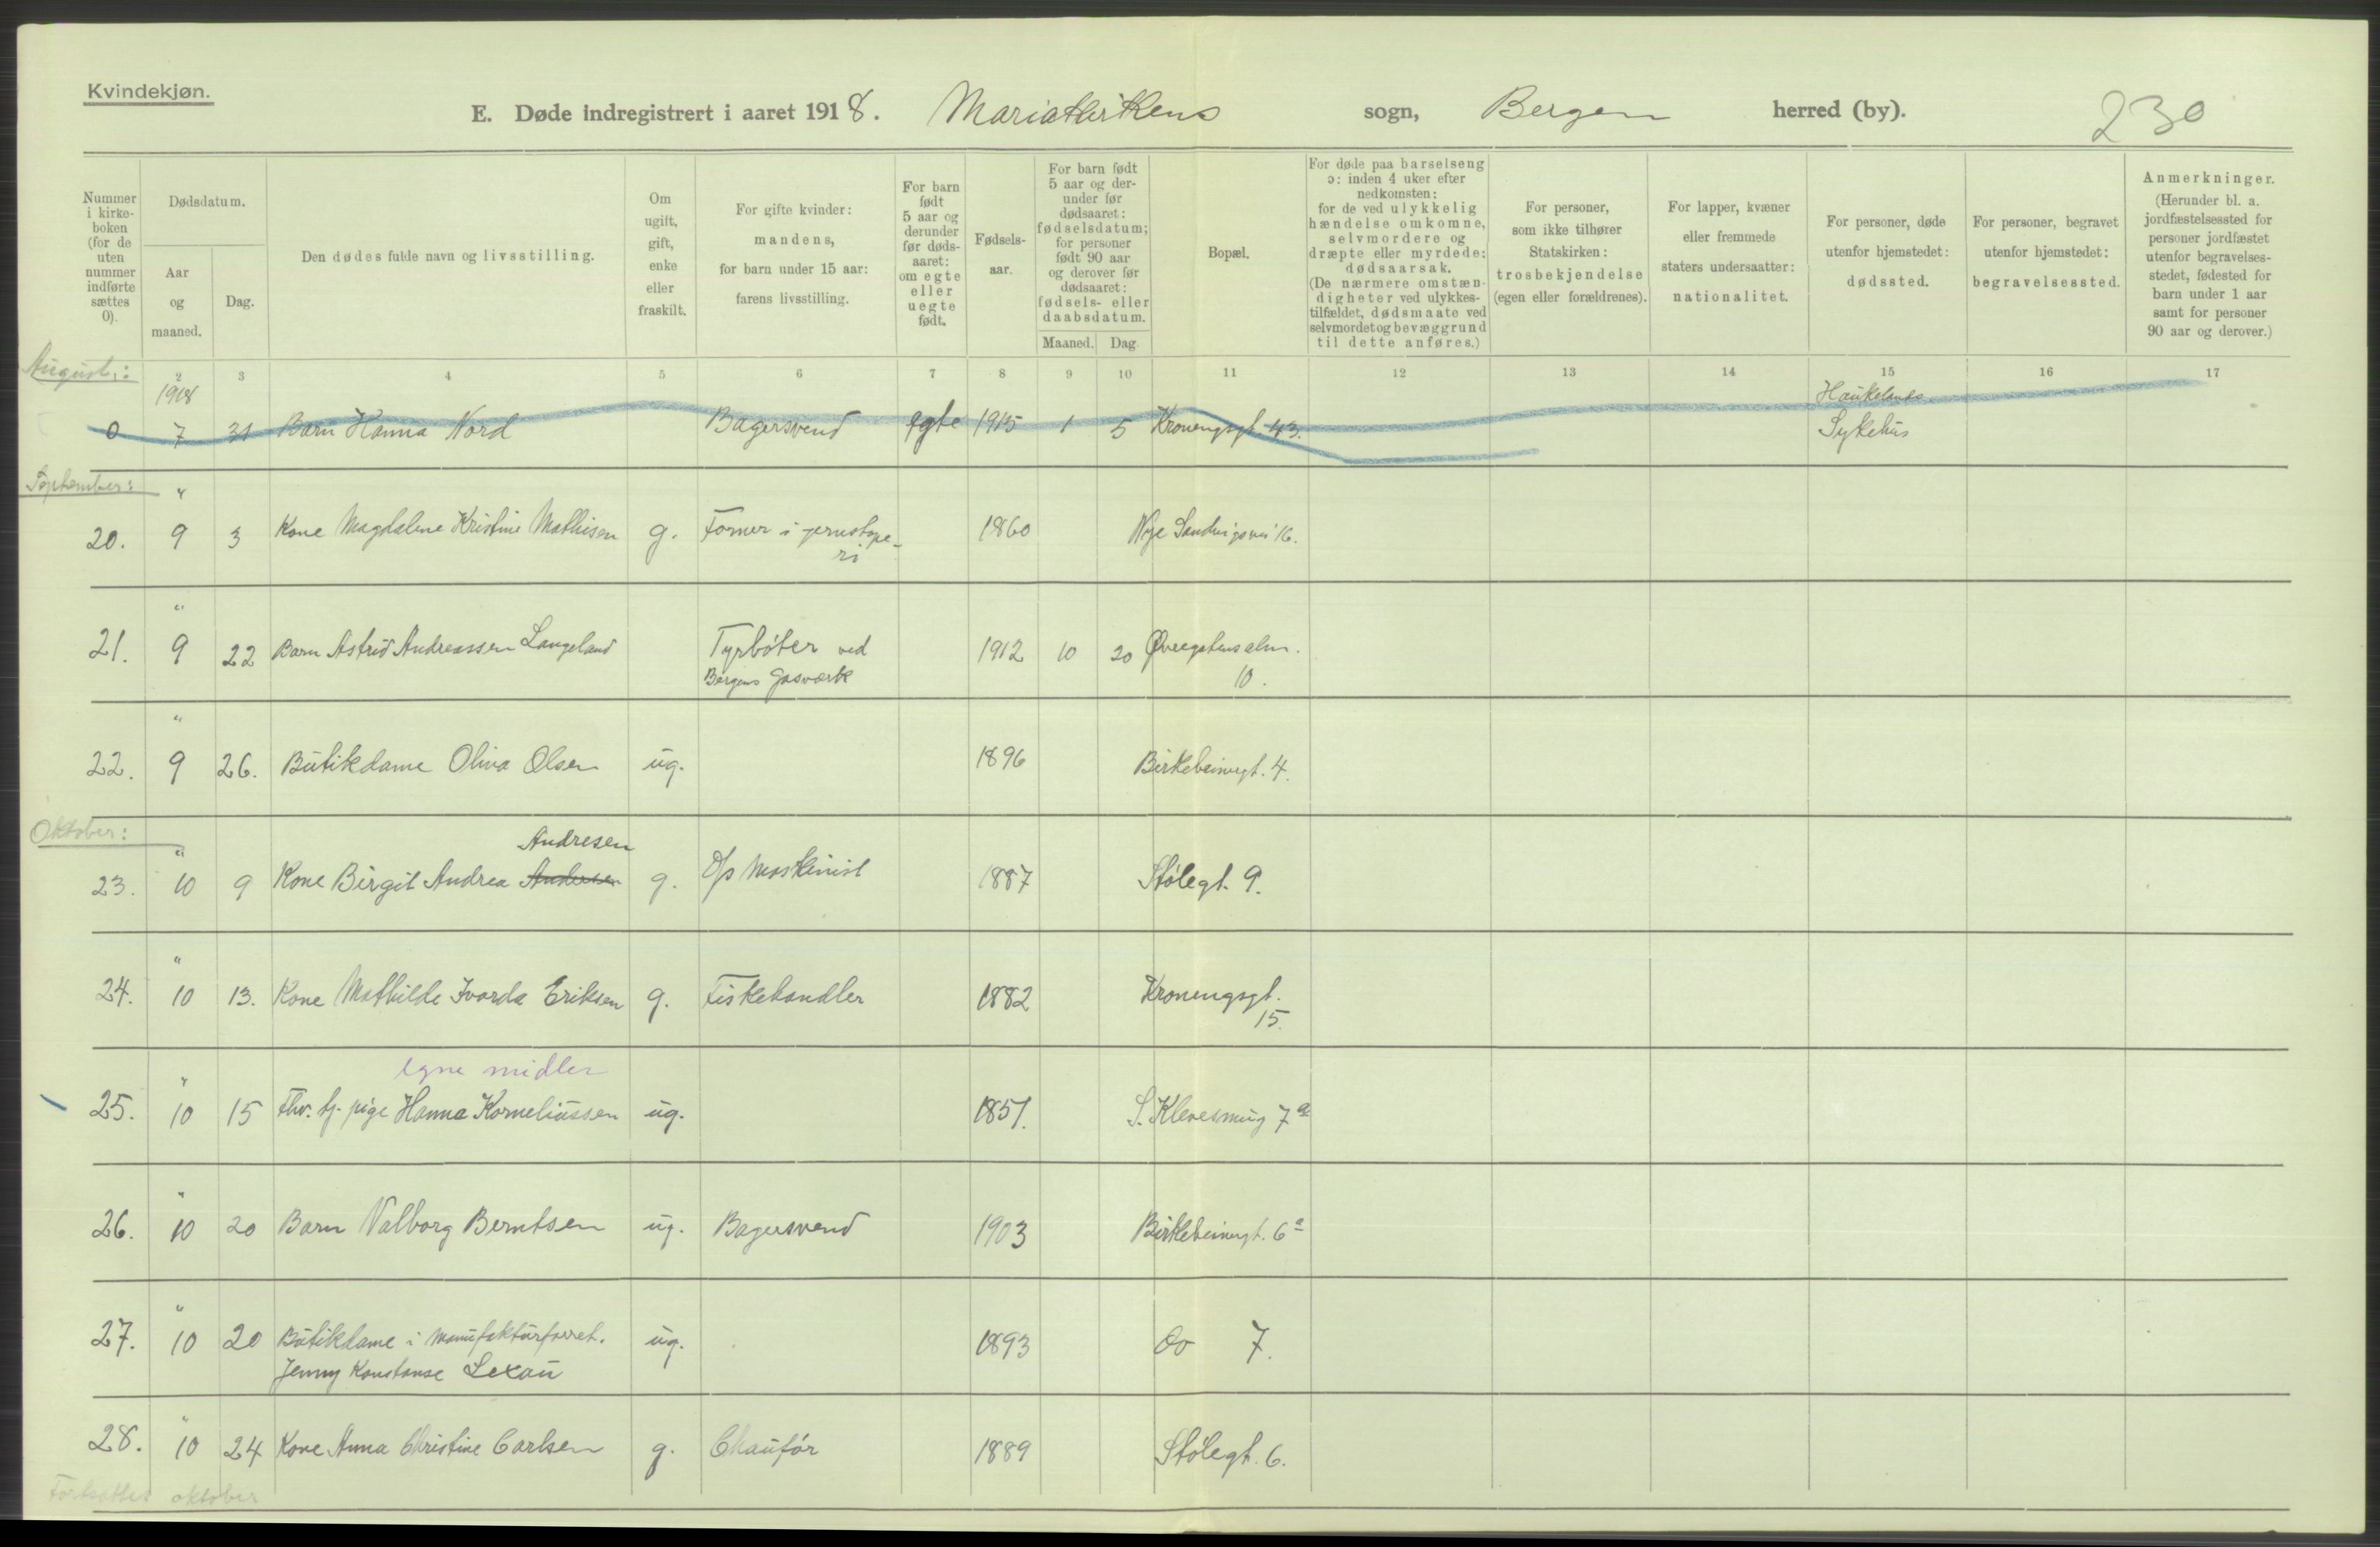 Kvindekjøn.
E. Døde indregistrert i aaret 1918. Mariakirkens sogn, Bergen herred (by). 230
Nummer i kirke-boken (for de uten nummer indførte sættes 0).
Dødsdatum.
Aar og maaned.
Dag.
Den dødes fulde navn og livsstilling.
Om ugift, gift, enke eller fraskilt.
For gifte kvinder: mandens, for barn under 15 aar: farens livsstilling.
For barn født 5 aar og derunder før døds-aaret: om egte eller uegte født.
Fødsels-aar.
For barn født 5 aar og der-under før dødsaaret: fødselsdatum; for personer født 90 aar og derover før dødsaaret: fødsels- eller daabsdatum.
Maaned. Dag.
Bopæl.
For døde paa barselseng ɔ: inden 4 uker efter nedkomsten: for de ved ulykkelig hændelse omkomne, selvmordere og dræpte eller myrdede: dødsaarsak. (De nærmere omstæn-digheter ved ulykkes-tilfældet, dødsmaate ved selvmordet og bevæggrund til dette anføres.)
For personer, som ikke tilhører Statskirken: trosbekjendelse (egen eller forældrenes).
For lapper, kvæner eller fremmede staters undersaatter: nationalitet.
For personer, døde utenfor hjemstedet: dødssted.
For personer, begravet utenfor hjemstedet: begravelsessted.
Anmerkninger. (Herunder bl. a. jordfæstelsessted for personer jordfæstet utenfor begravelses-stedet, fødested for barn under 1 aar samt for personer 90 aar og derover.)
August:
2 3 4 5 6 7 8 9 10 11 12 13 14 15 16 17
1918
0 7 31 Barn Hanna Nord Bagersvend egte 1915 1 5 Kronengsgt. 43. Haukelands Sykehus
September:
"
20. 9 3 Kone Magdalene Kristine Mathisen g. Former i jernstøpe-ri 1860 Nye Sandvigsvei 16.
"
21. 9 22 Barn Astrid Andreassen Langeland Fyrbøter ved Bergens Gasværk 1912 10 20 Øvregatens alm. 10.
"
22. 9 26. Butikdame Oliva Olsen ug. 1896 Birkebeinergt. 4.
Oktober:
Andresen
"
23. 10 9 Kone Birgit Andrea Andersen g. D/s Maskinist 1887 Stølegt. 9.
"
24. 10 13. Kone Mathilde Ivarda Eriksen g. Fiskehandler 1882 Kronengsgt. 15.
egne midler
"
25. 10 15 Fhv. tj. pige Hanna Korneliussen ug. 1851. S. Klevesmug 7a
"
26. 10 20 Barn Valborg Berntsen ug. Bagersvend 1903 Birkebeinergt. 6a
"
27. 10 20 Butikdame i manufakturforret. ug. 1893 do 7.
Jenny Konstanse Lexau
"
28. 10 24 Kone Anna Christine Carlsen g. Chauffør 1889 Stølegt. 6.
Fortsættes oktober